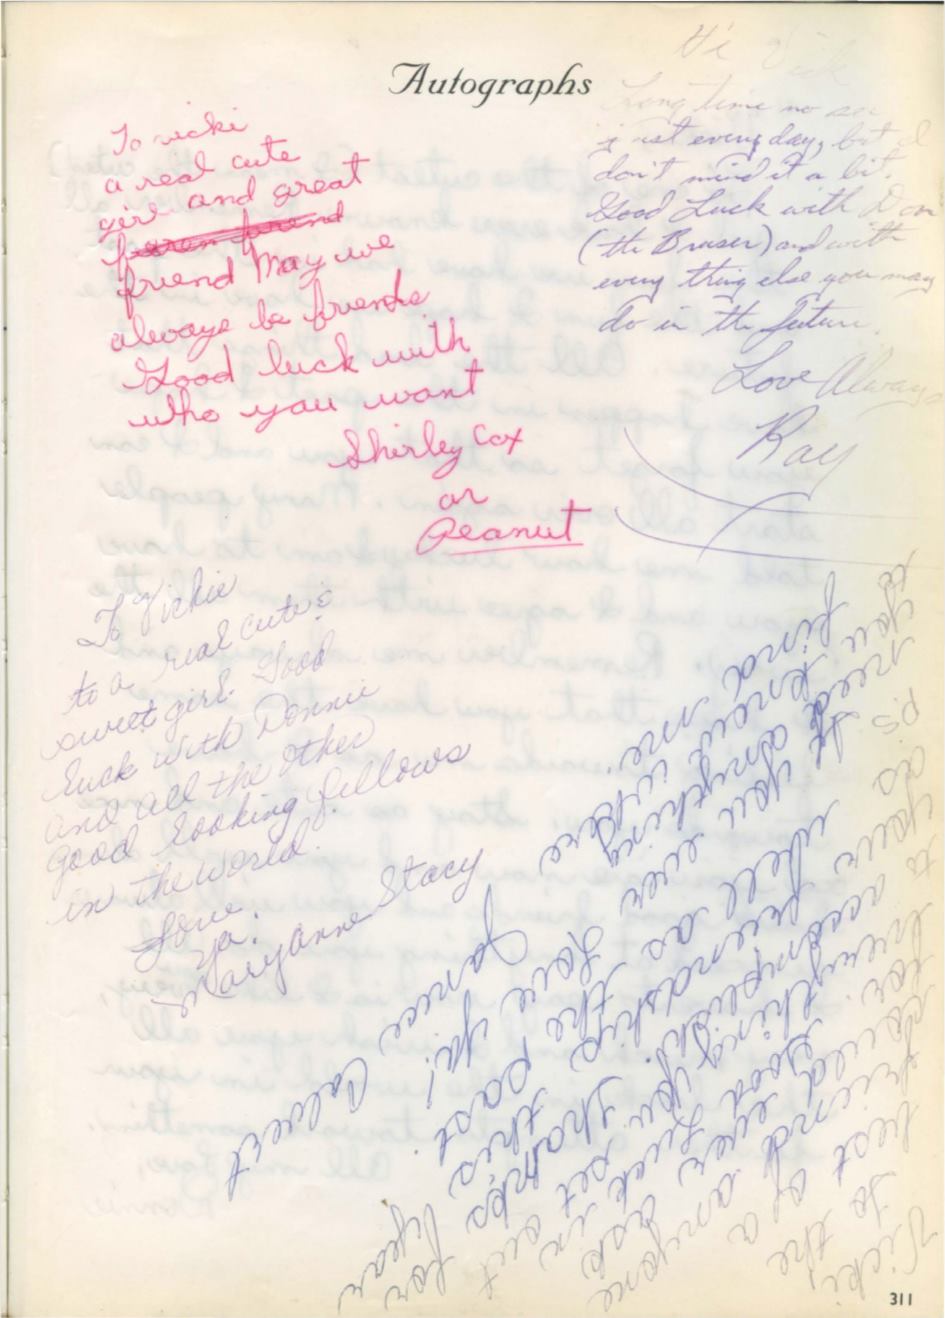 Autographs
To vicki
a real cute
girl and great
friend May we
always be friends
Good luck with
who you want
Shirley Cox
or
Peanut
Hi Vick
Long time no see
just every day, but I
don't mind it a bit.
Good Luck with Don
(the Bruser) and with
every thing else you may
do in the future.
Love Always
Ray
To Vickie
to a real cute &
sweet girl. Good
luck with Donnie
and all the other
good looking fellows
in the world.
Love
Ya!
Maryanne Stacy
Vicki,
to the
best of a
friend anyone
could ask
for. luck in
Thanks for
your friendship this year
as well as the past.
Love ya!
Janice Calvert
P.S. If you ever
need anything
you know where
to find me.
311